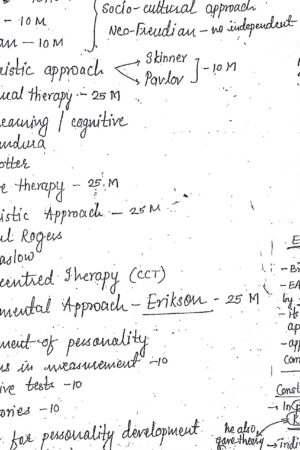 Socio-cultural approach
- 10 M
Neo-Freudian - no independent
an - 10 M
istic approach
Skinner
Pavlov
- 10 M
ual therapy - 25 M
earning / cognitive
andura
otter
e therapy - 25 M
istic Approach - 25 M
ul Rogers
aslow
centred Therapy (CCT)
mental Approach - Erikson - 25 M
ment of personality
ns in measurement -10
ive tests -10
ories -10
for personality development
he also
gave theory
E
- EA
by
- Hs
ap
- app
Com
Const
→ indi